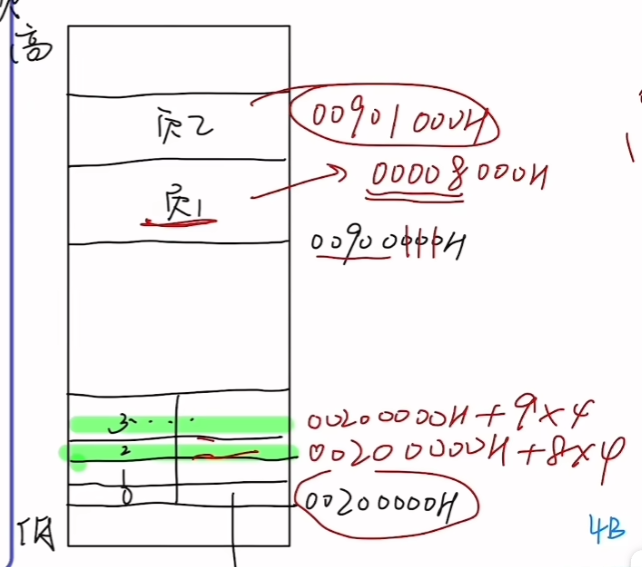 高
页2
00901000H
00008000H
页1
00900000H
3....
00200000H+9×4
2
00200000H+8×4
1
0
00200000H
低
4B